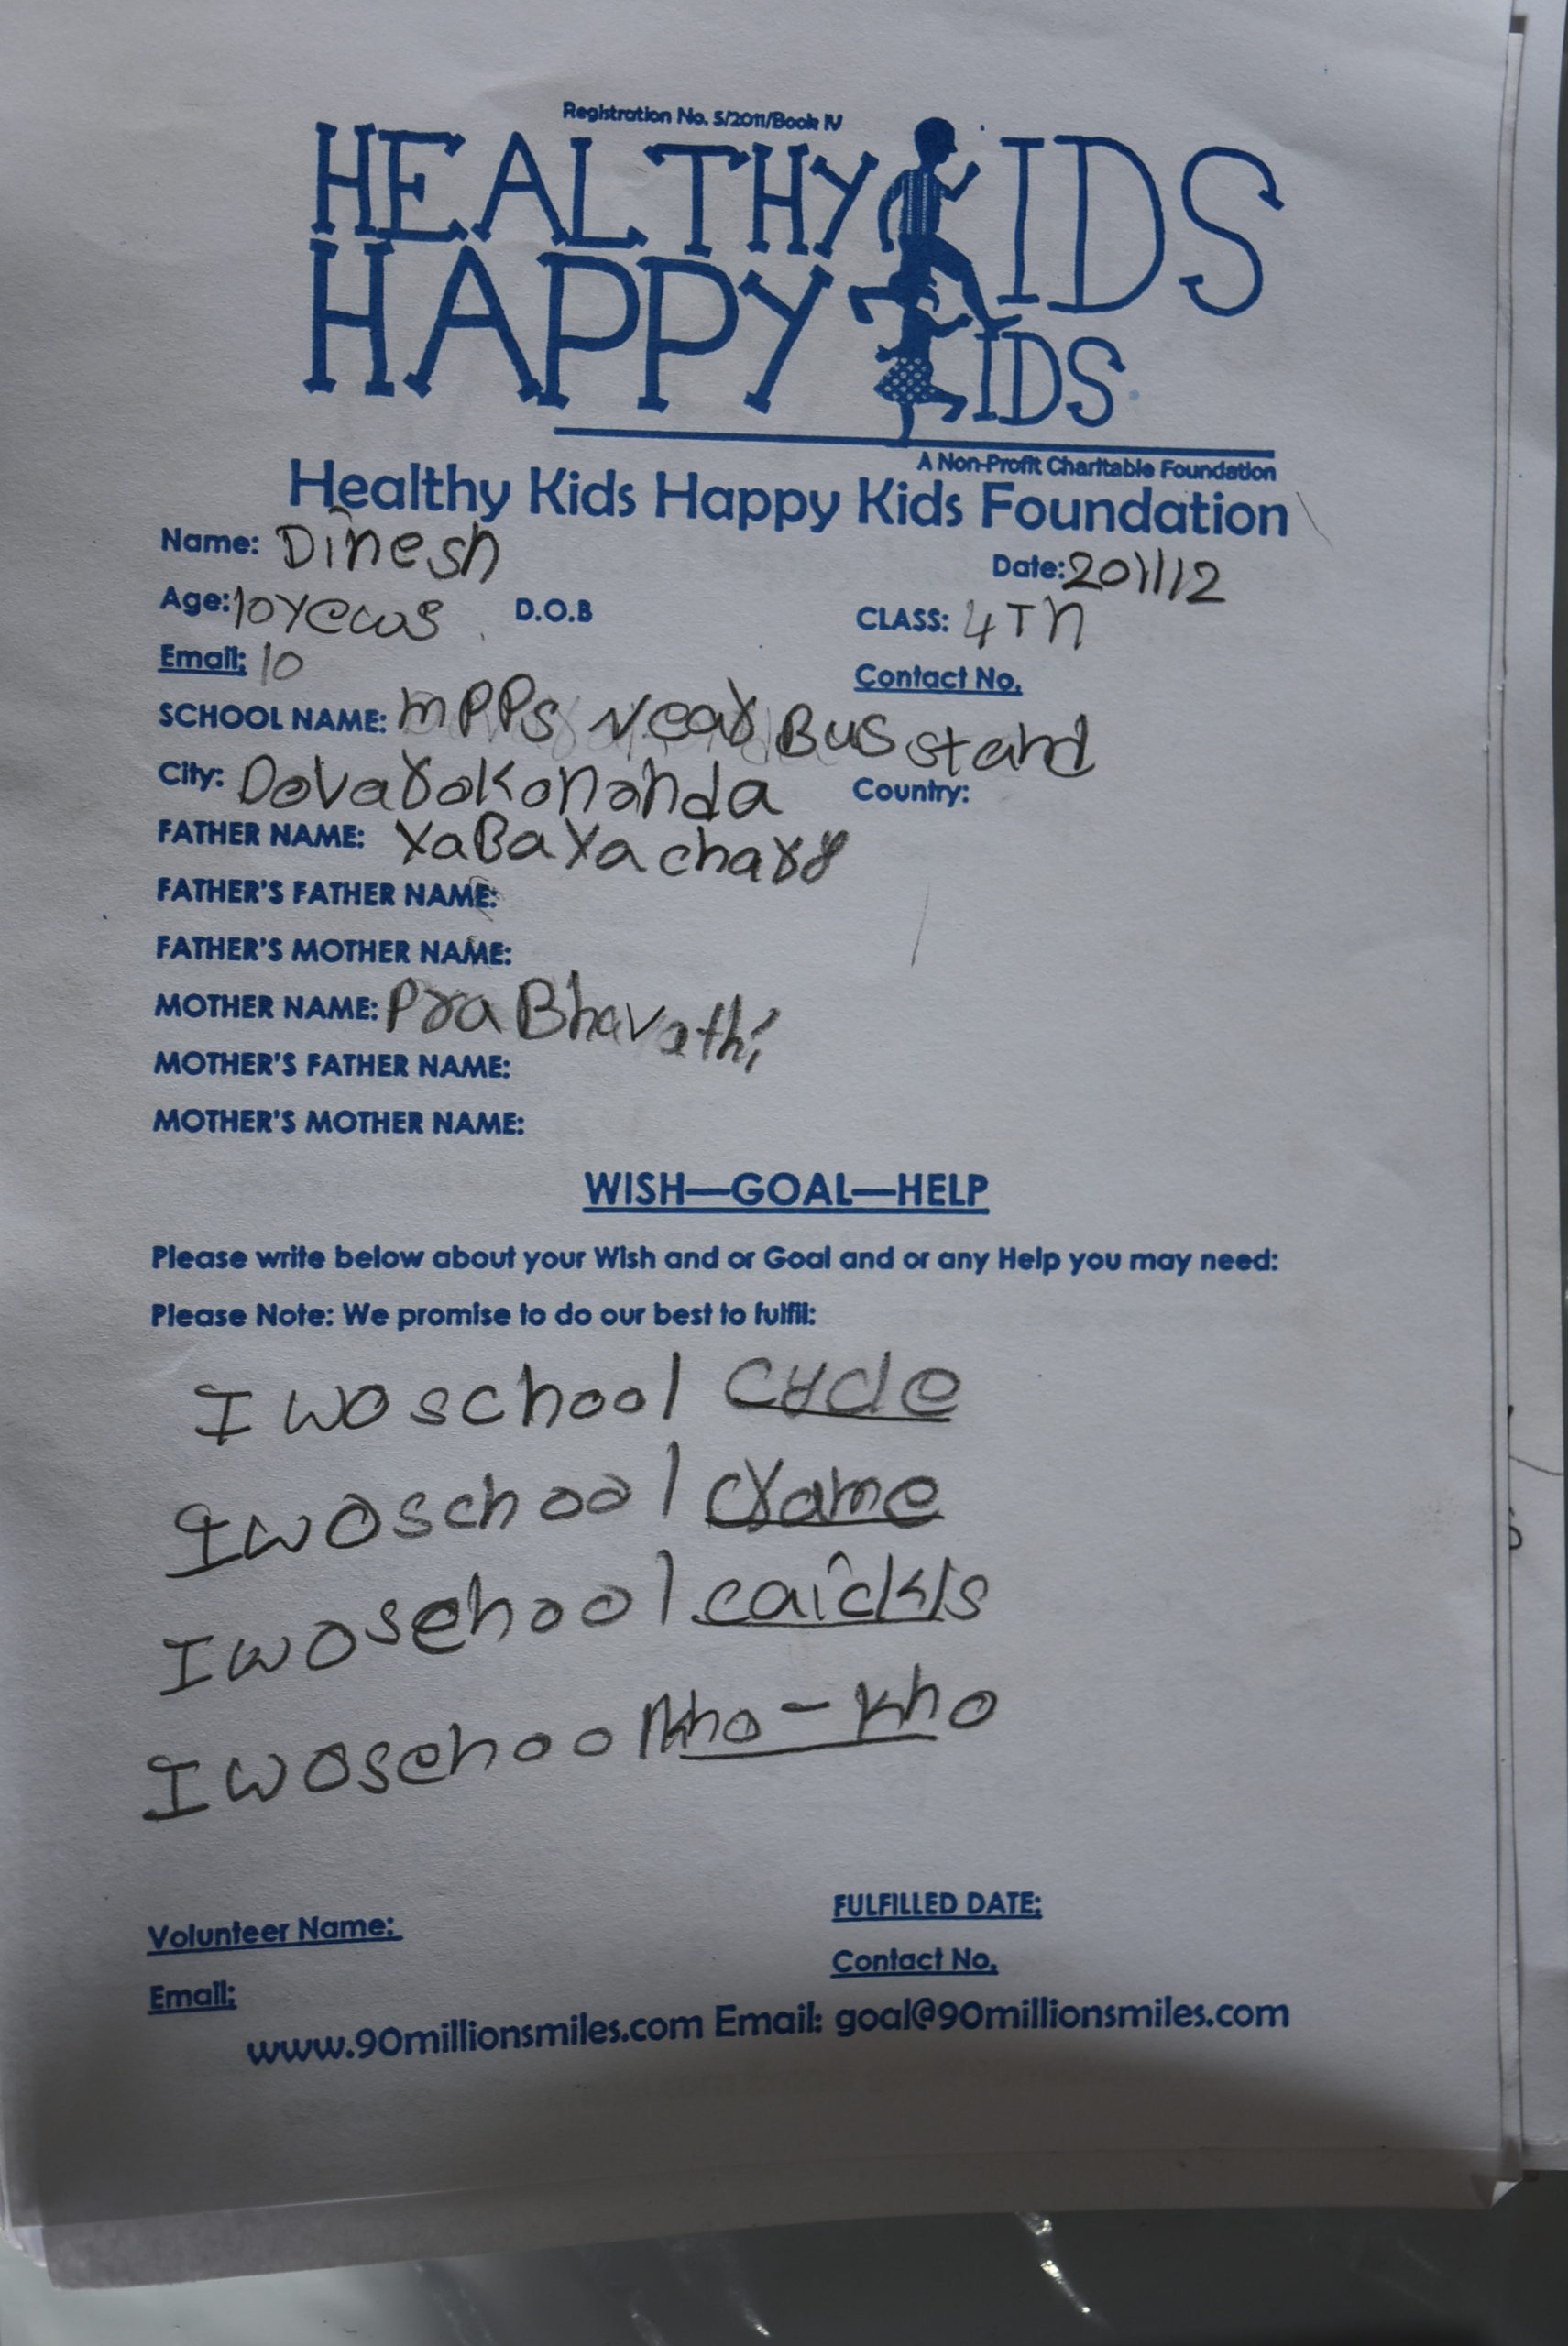 Registration No. 5/2011/Book IV
HEALTHY KIDS
HAPPY KIDS
A Non-Profit Charitable Foundation
Healthy Kids Happy Kids Foundation
Name: Dinesh
Date: 201112
Age: 10 years D.O.B CLASS: 4Th
Email: 10 Contact No.
SCHOOL NAME: mPPs Near Bus stand
City: Dovarakonanda Country:
FATHER NAME: YaBaYachary
FATHER'S FATHER NAME:
FATHER'S MOTHER NAME:
MOTHER NAME: PraBhavathi
MOTHER'S FATHER NAME:
MOTHER'S MOTHER NAME:
WISH—GOAL—HELP
Please write below about your Wish and or Goal and or any Help you may need:
Please Note: We promise to do our best to fulfil:
I wo school cycle
I wo school
I wo school
I wo school kho-kho
Volunteer Name: FULFILLED DATE:
Email: Contact No.
www.90millionsmiles.com Email: goal@90millionsmiles.com